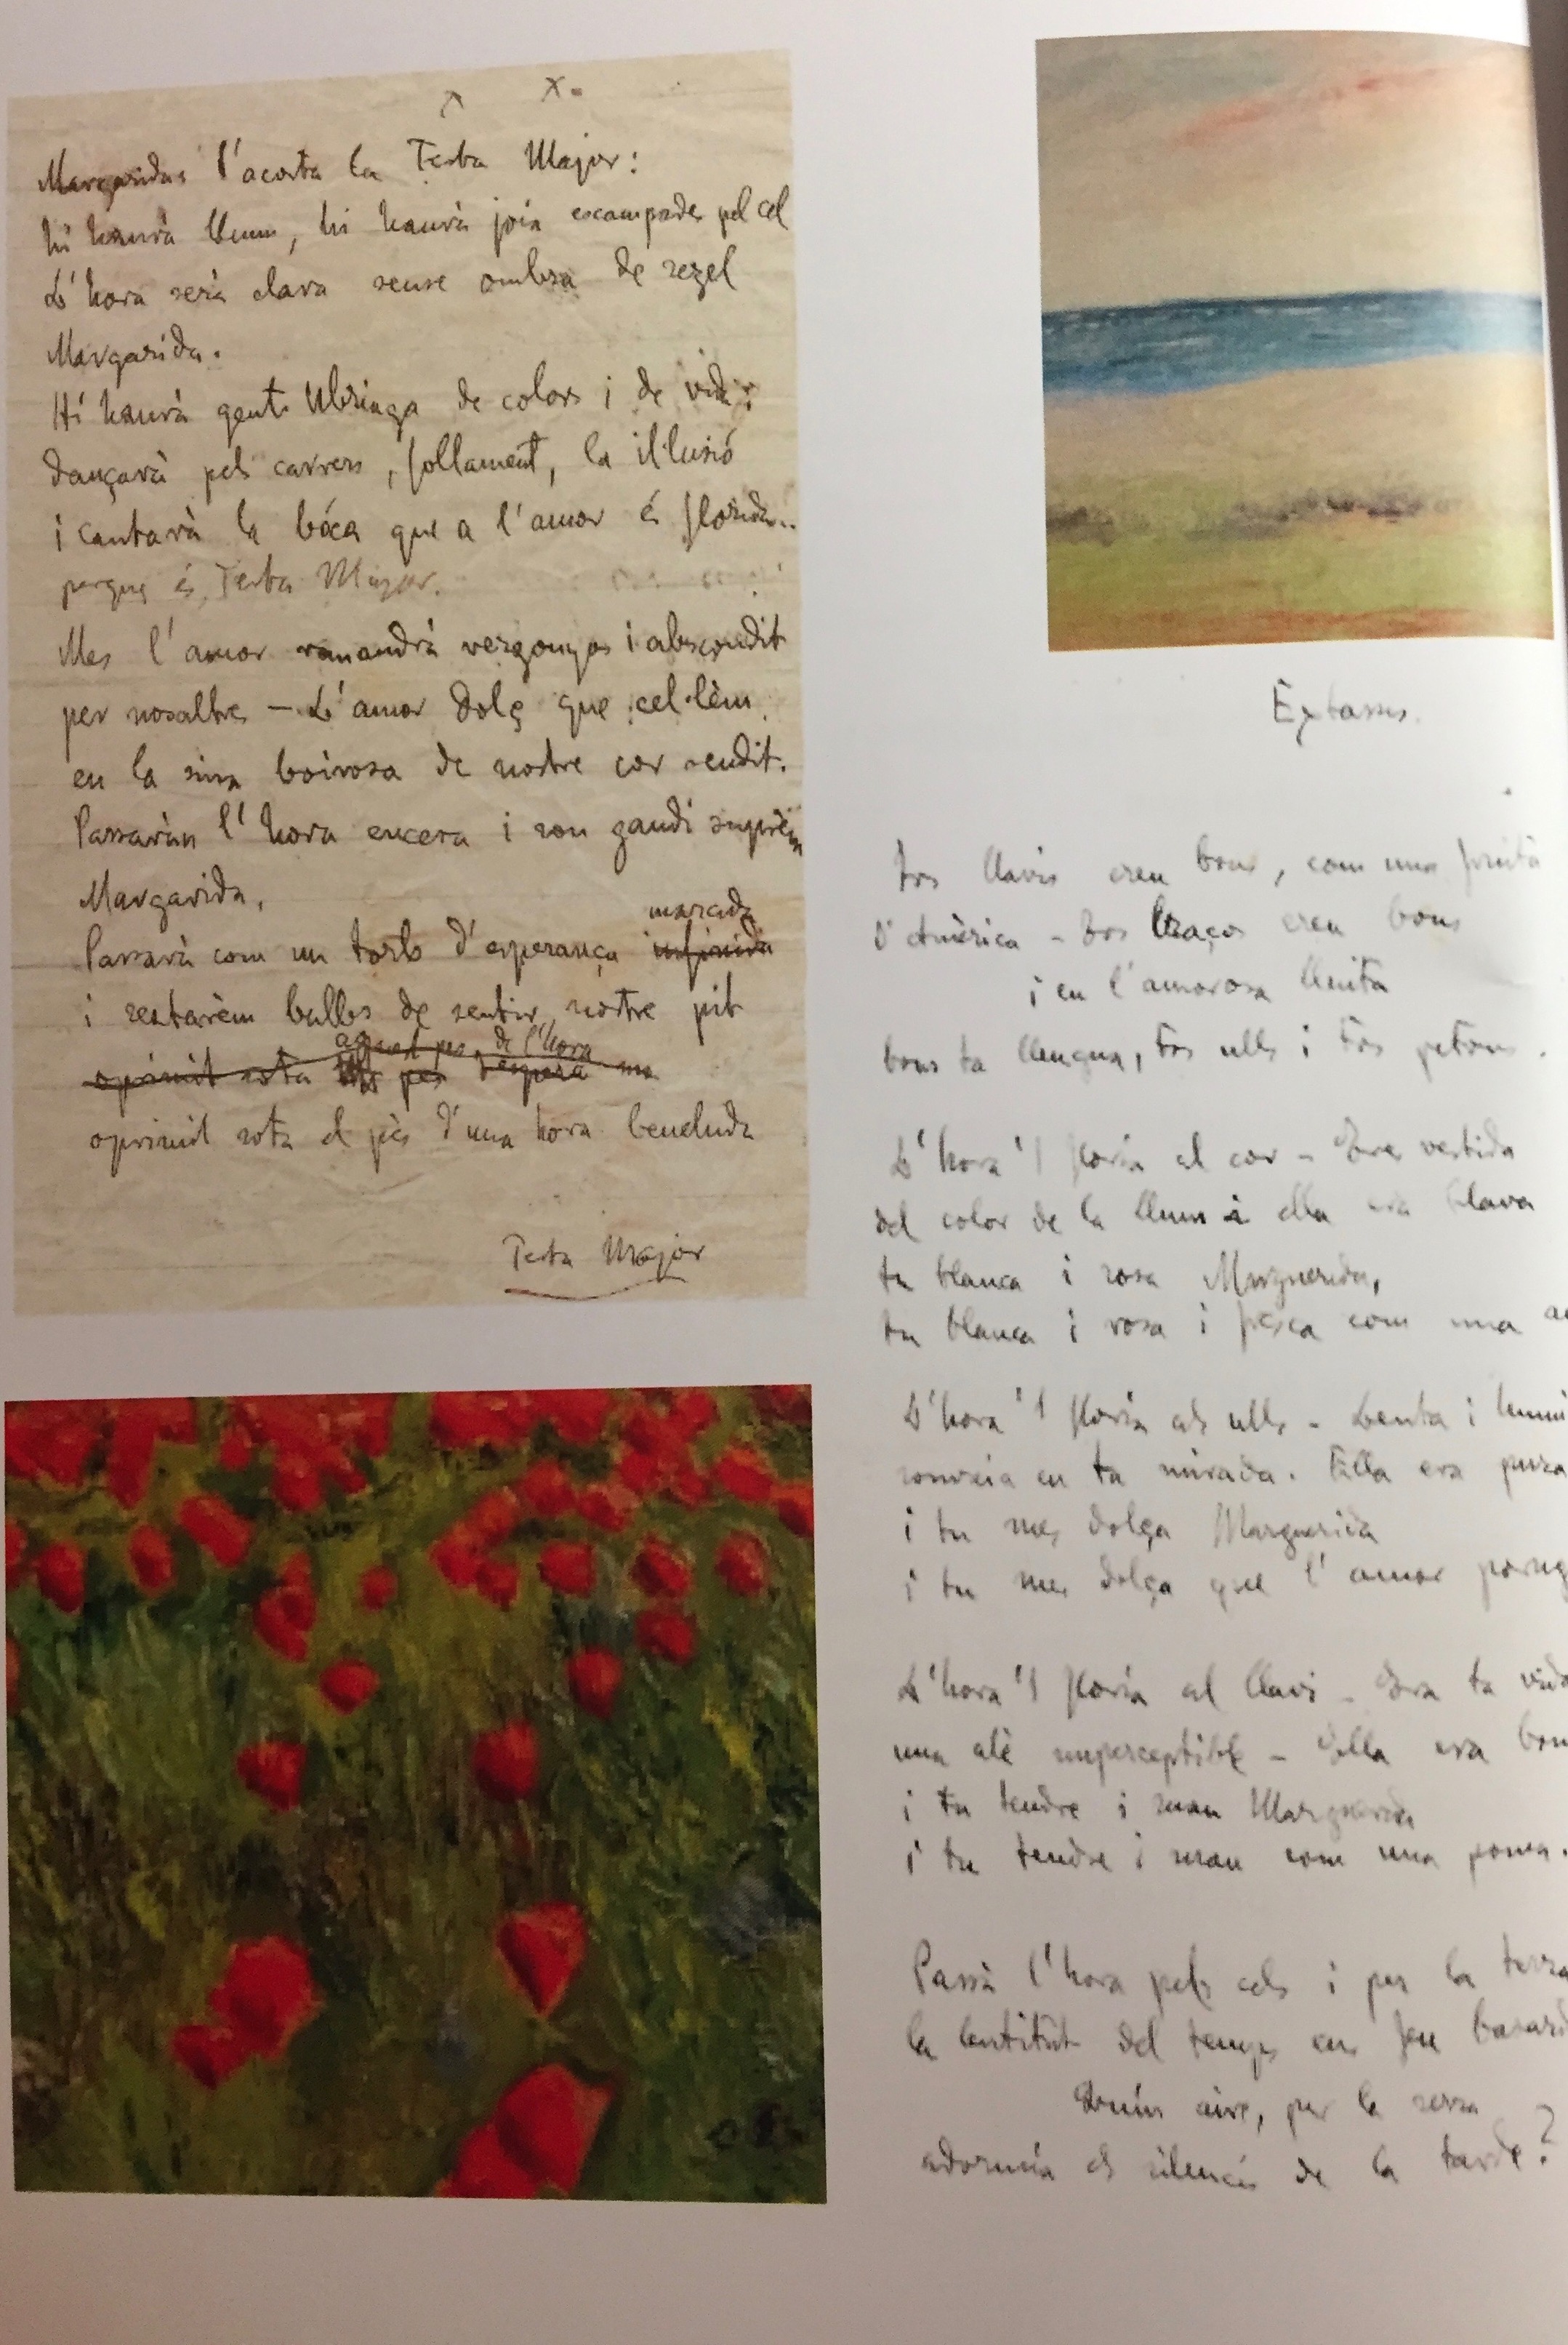 Margarida s'acosta la Festa Major:
hi haurà llum, hi haurà joia escampades pel cel
L'hora serà clara sense ombra de rezel
Margarida.
Hi haurà gent ubriaga de colors i de vida;
dançarà pels carrers, follament, la il·lusió
i cantarà la bóca que a l'amor és florida..
perque és Festa Major.
Mes l'amor romandrà vergonyos i abscondit
per nosaltres – L'amor dolç que cel·lèm
en la sina boirosa de nostre cor rendit.
Passaràn l'hora encesa i son gaudi suprèm
Margarida,
marcida
Passarà com un torb d'esperança infinida
i restarèm balbs de sentir nostre pit
aquest pes de l'hora
oprimit sota pes
oprimit sota el pès d'una hora beneluda
Festa Major
Èxtassis.
tos llavis eren bons, com una fruita
d'Amèrica – tos braços eren bons
i en l'amorosa lluita
bons ta llengua, tos ulls i tos petons.
L'hora 's floria al cor – Eres vestida
del color de la llum i ella era blava
tu blanca i rosa Marguerida,
tu blanca i rosa i fresca com una
L'hora 's floria als ulls – Lenta i
somreia en ta mirada. Ella era pura
i tu mes dolça Marguerida
i tu mes dolça que l'amor
L'hora 's floria al llavi – Era ta vida
una alè imperceptible – Ella era
i tu tendre i suau Marguerida
i tu tendre i suau com una poma.
Passà l'hora pels cels i per la terra
la lentitut del temps ens feu
aire, per la serra
adormia els silencis de la tarde?